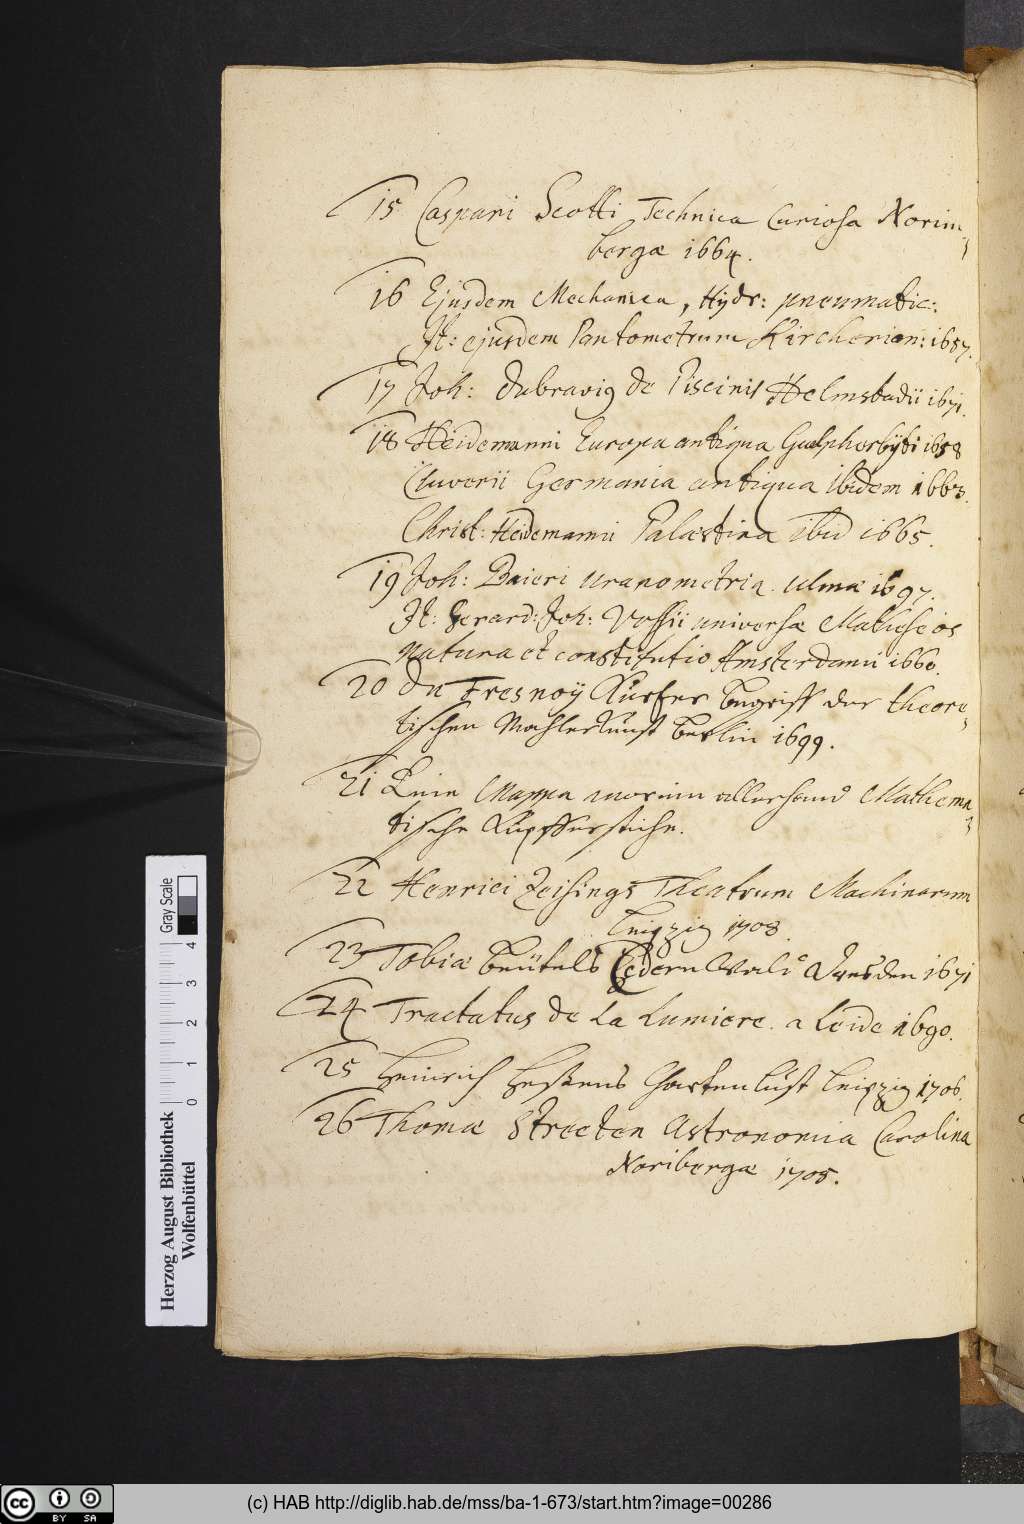 15 Caspari Scotti Technica Curiosa Norim=
bergæ 1664.
16 Ejusdem Mechanica, Hydr: pneumatic:
It: ejusdem Pantometrum Kircherian: 1657.
17 Joh: Dubravig de Piscinis Helmstadii 1671.
18 Heidemanni Europa antiqua Guelpherbyti 1658
Cluverii Germania antiqua ibidem 1663.
Christ: Heidemanni Palæstina ibid 1665.
19 Joh: Baieri Uranometria. Ulmæ 1697.
It: Gerard: Joh: Vossii universæ Matheseos
natura et constitutio Amsterdamii 1660.
20 Du Fresnoy Kurtzer begriff der theore=
tischen Mahlerkunst Berlin 1699.
21 Eine Mappa worinn allerhand Mathema=
tische Kupfferstiche.
22 Henrici Zeisings Theatrum Machinarum
Leipzig 1708.
23 Tobiæ Beutels Cedern Wald Dresden 1671
24 Tractatus de La Lumiere. a Leide 1690.
25 Heinrich Hessens Garten Lust Leipzig 1706.
26 Thomæ Streeten Astronomia Carolina
Noribergæ 1705.
Gray Scale
0 1 2 3 4
Herzog August Bibliothek
Wolfenbüttel
cc BY SA
(c) HAB http://diglib.hab.de/mss/ba-1-673/start.htm?image=00286